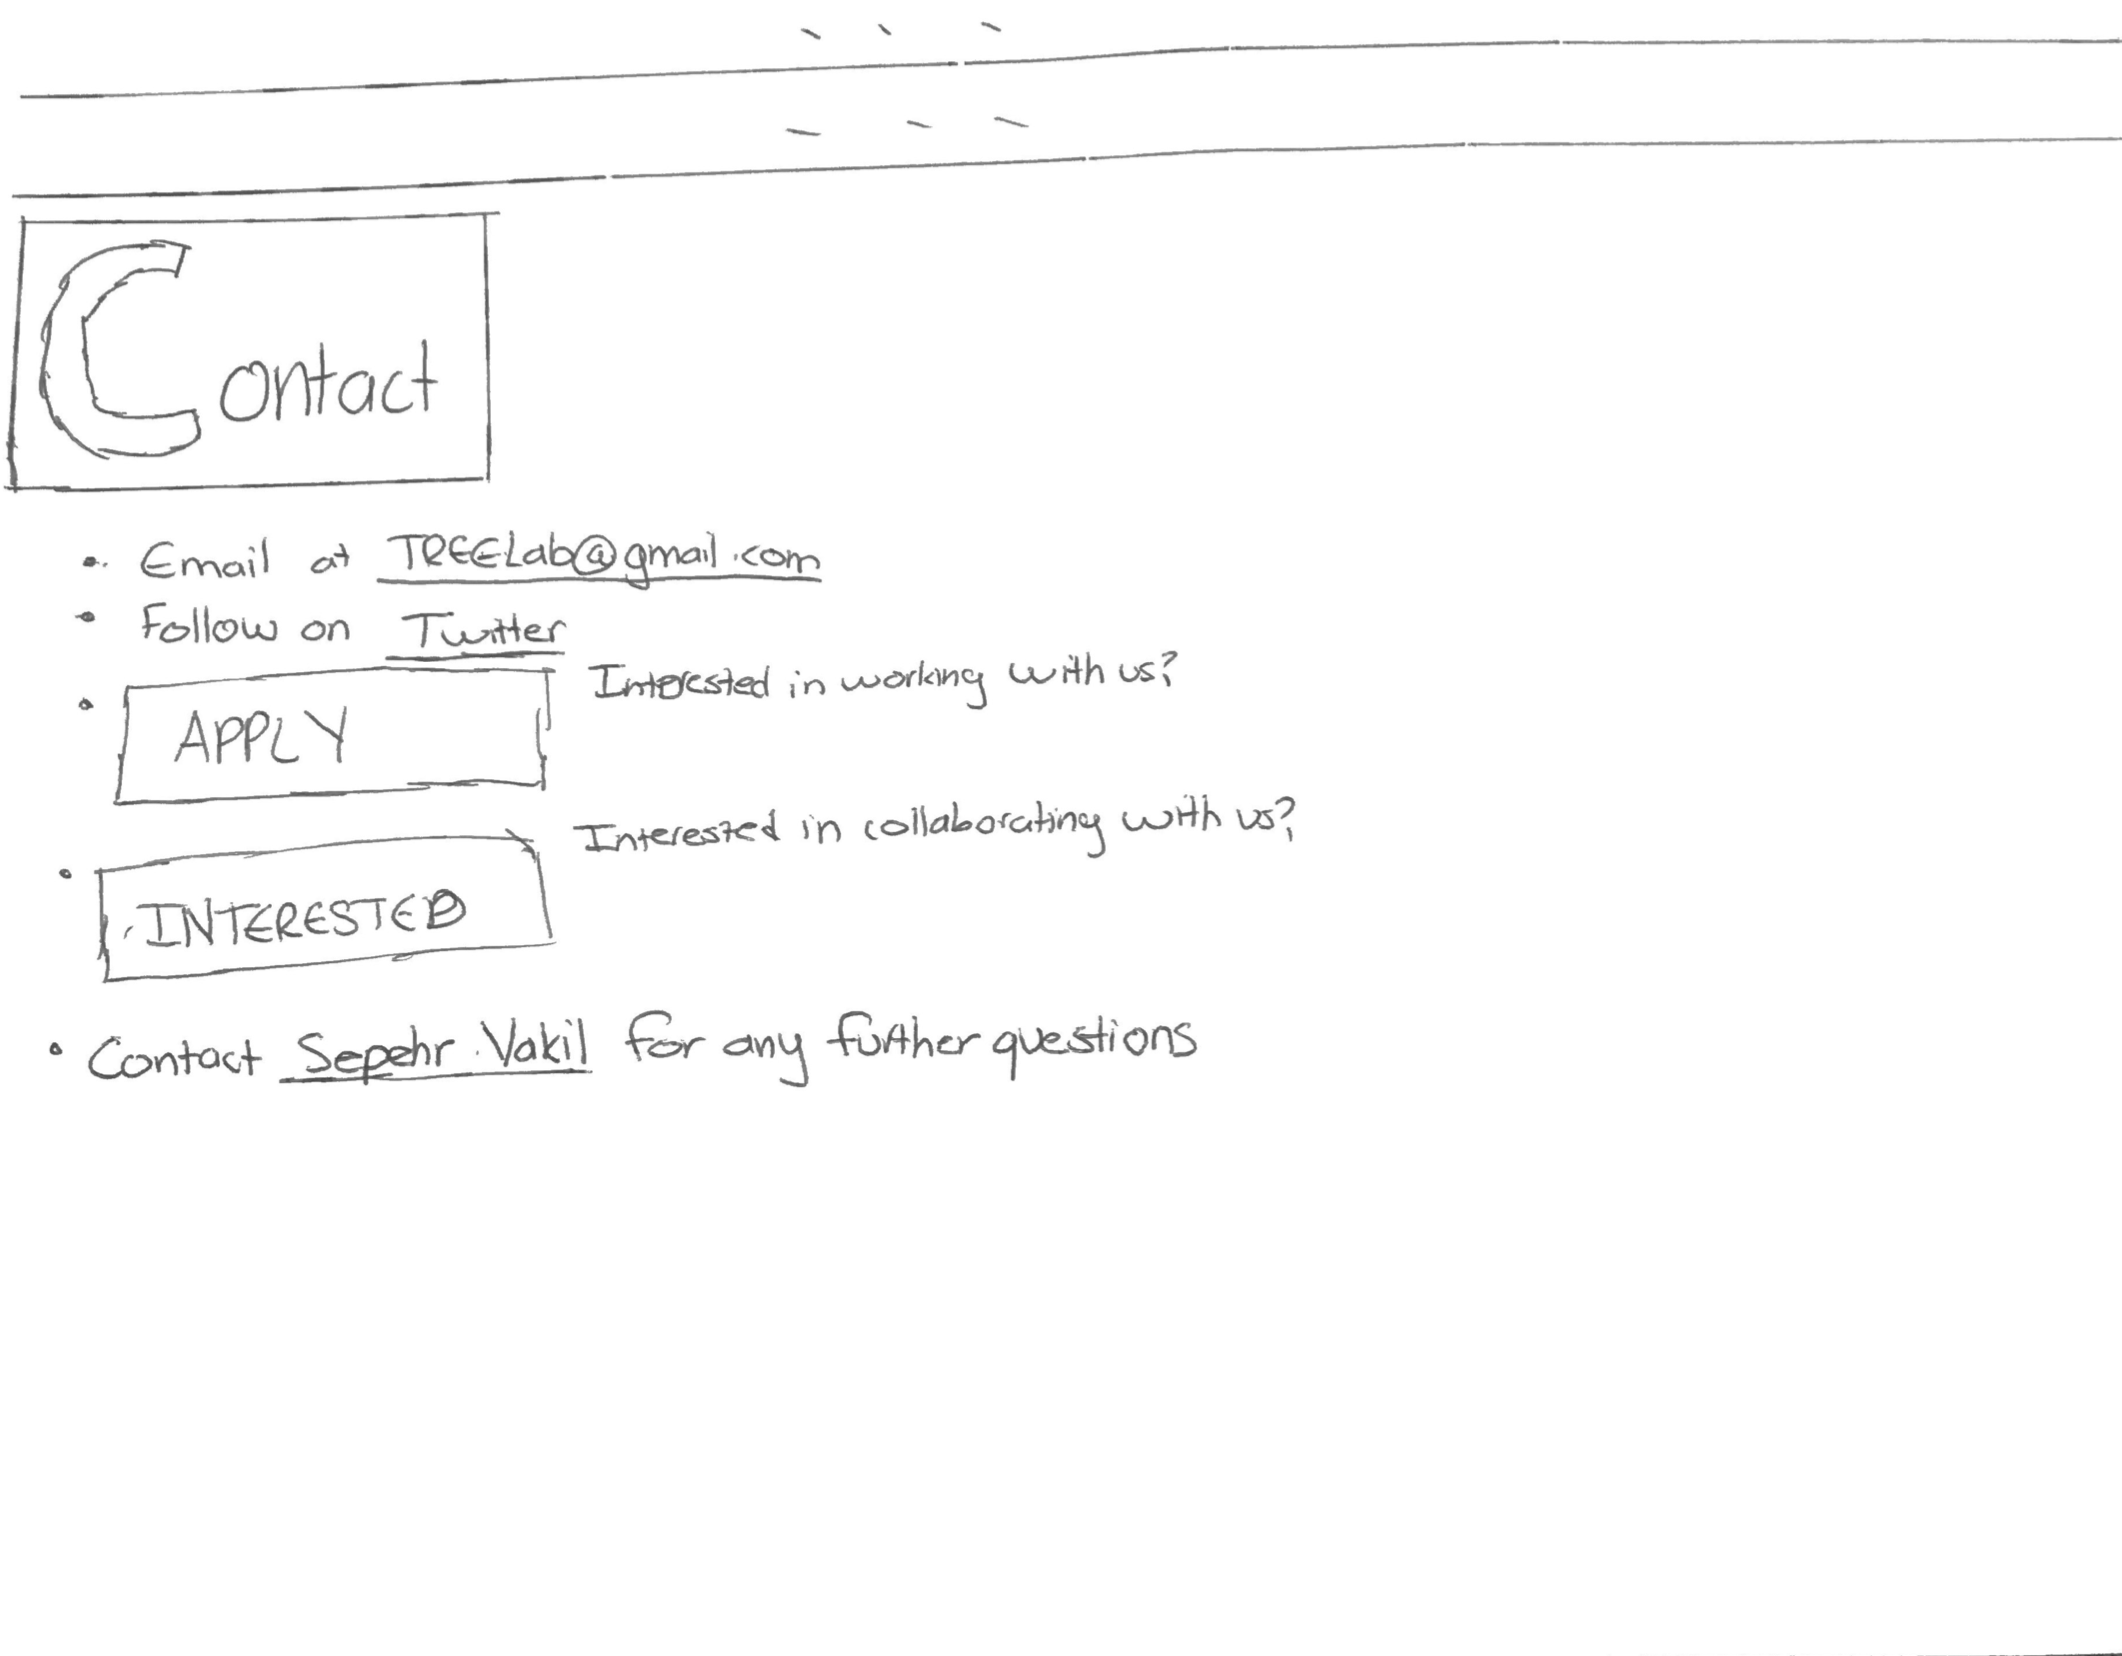 Contact
• Email at TREELab@gmail.com
• Follow on Twitter
• APPLY Interested in working with us?
• INTERESTED Interested in collaborating with us?
• Contact Sepehr Vakil for any further questions